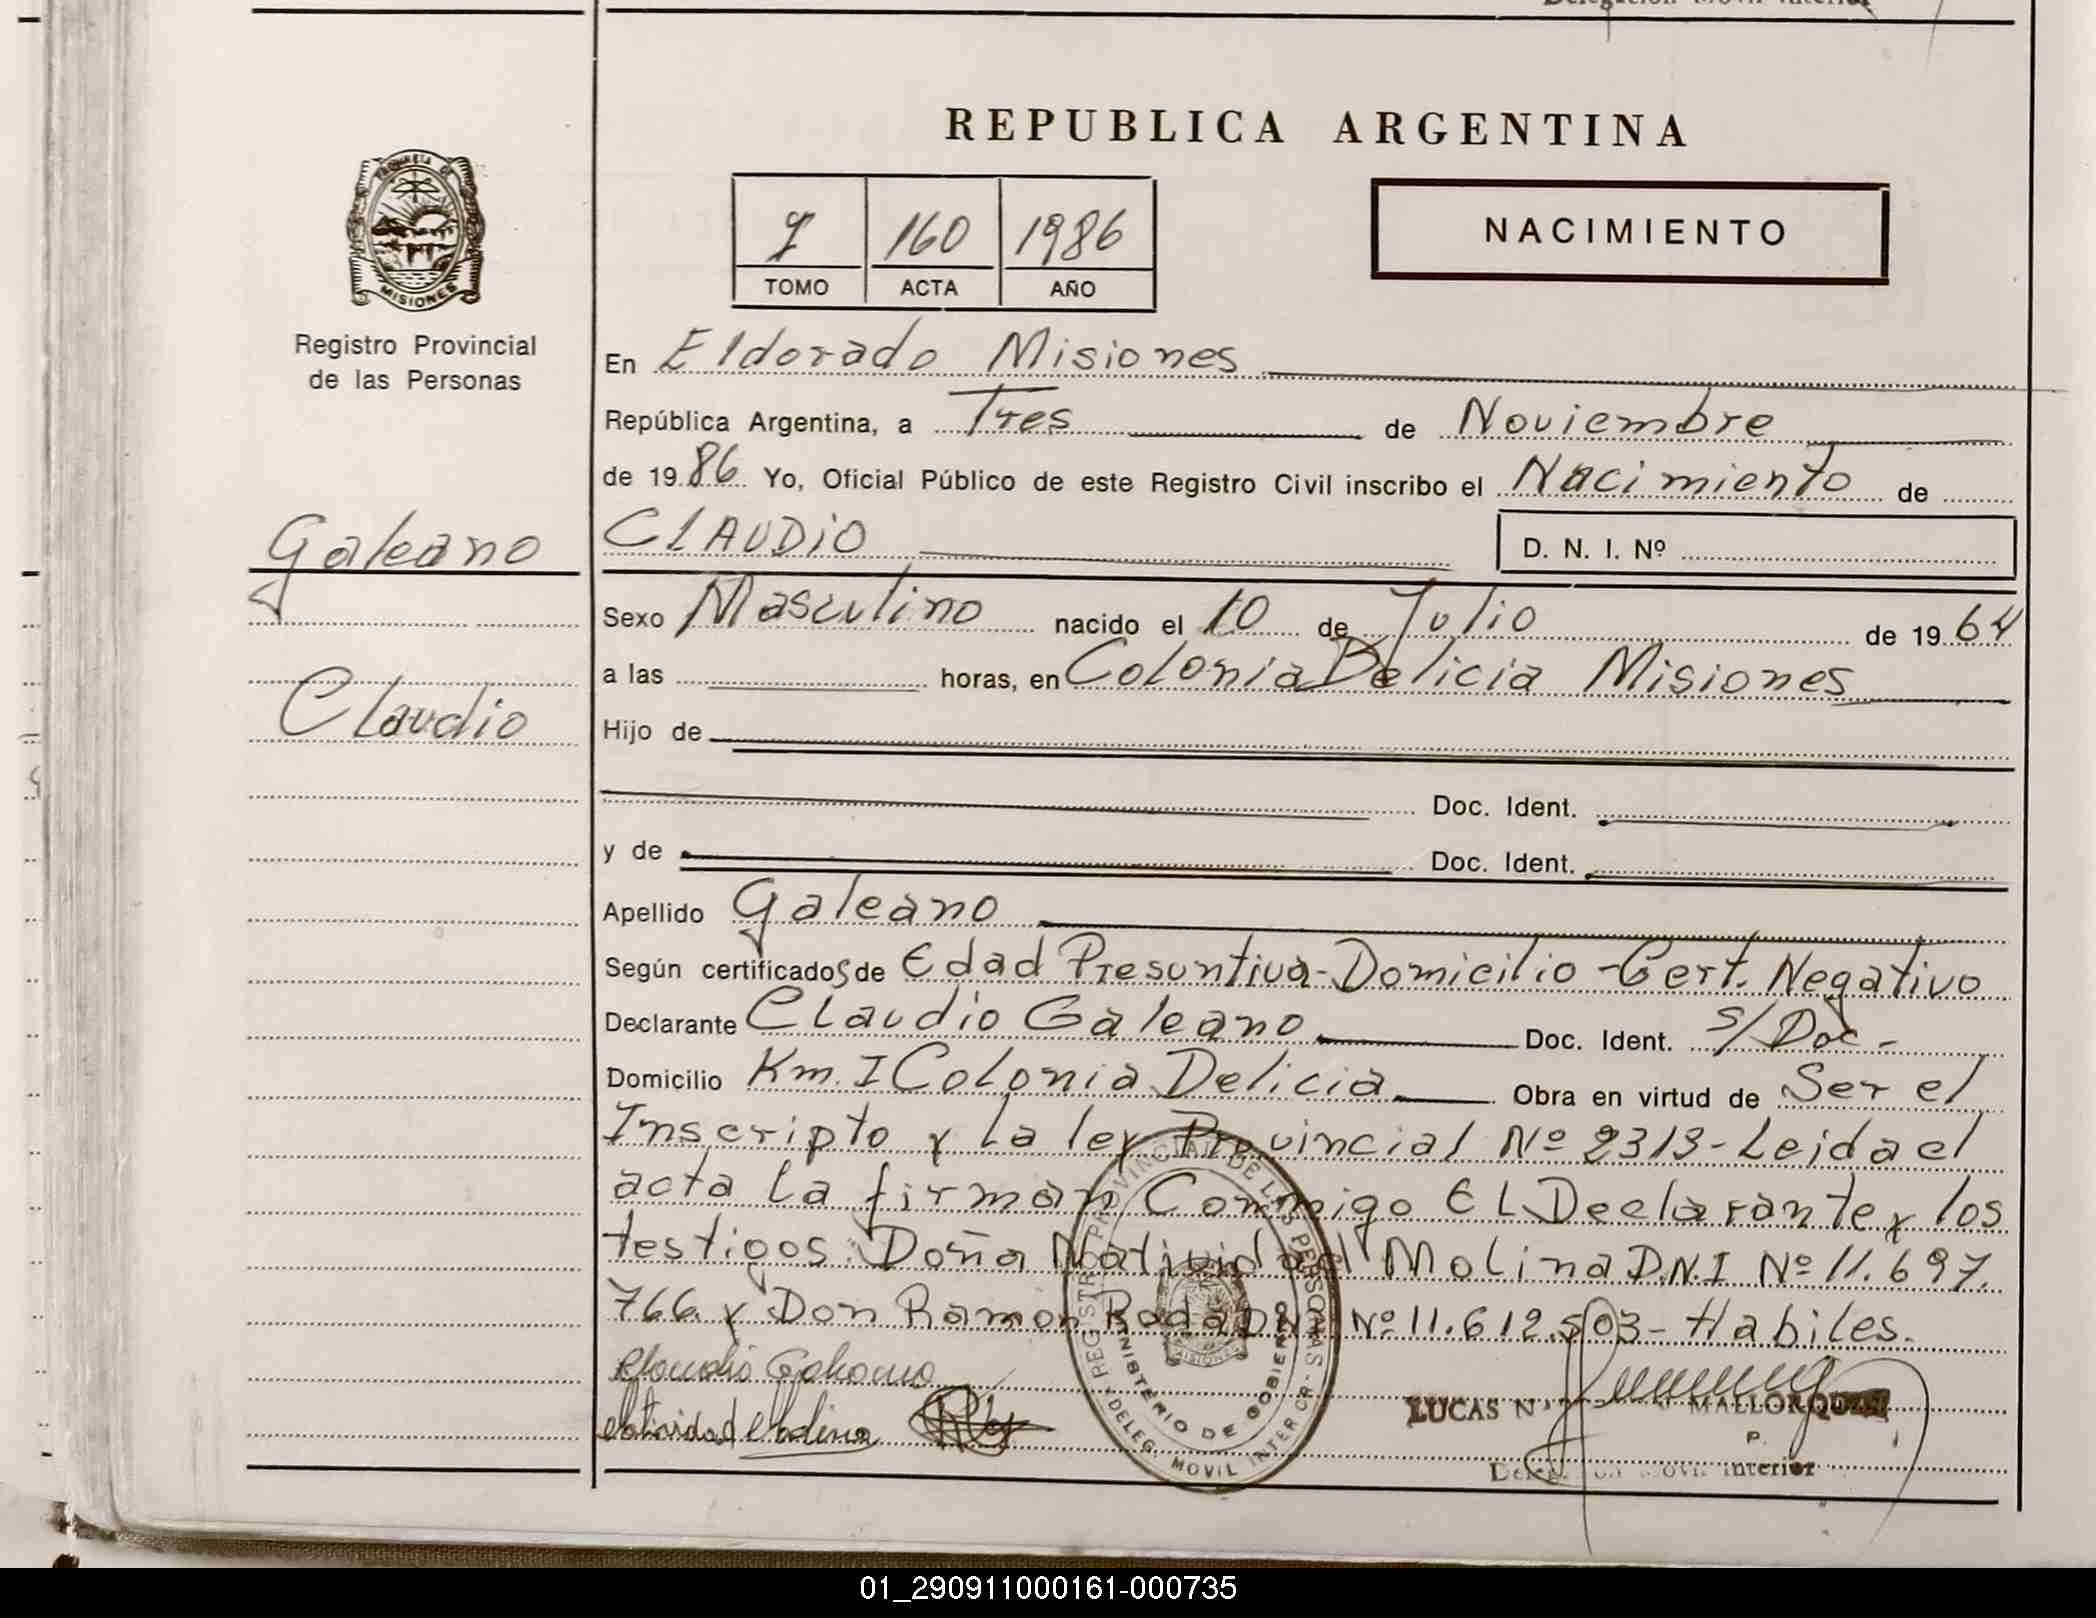 REPUBLICA ARGENTINA
160 1986
TOMO ACTA AÑO
NACIMIENTO
MISIONES
Registro Provincial
de las Personas
Galeano
Claudio
En Eldorado Misiones
República Argentina, a Tres de Noviembre
de 1986 Yo, Oficial Público de este Registro Civil inscribo el Nacimiento de
CLAUDiO D. N. I. Nº
Sexo Masculino nacido el 10 de Julio de 1964
a las horas, en Colonia Delicia Misiones
Hijo de
Doc. Ident.
y de Doc. Ident.
Apellido Galeano
Según certificados de Edad Presuntiva - Domicilio - Cert. Negativo
Declarante Claudio Galeano Doc. Ident. s/Doc -
Domicilio Km. I Colonia Delicia Obra en virtud de Ser el
Inscripto y la ley Provincial Nº 2313 - Leida el
acta la firman Conmigo EL Declarante y los
testigos: Doña Natividad Molina D.N.I Nº 11.697.
766 y Don Ramon Roda DNI Nº 11.612.503 - Habiles.
Claudio Galeano
Natividad Molina
LUCAS N MALLORQUIN
P.
Delegación Movil Interior
REGISTRO PROVINCIAL DE LAS PERSONAS
MINISTERIO DE GOBIERNO
DELEG. MOVIL INTERIOR
01_290911000161-000735